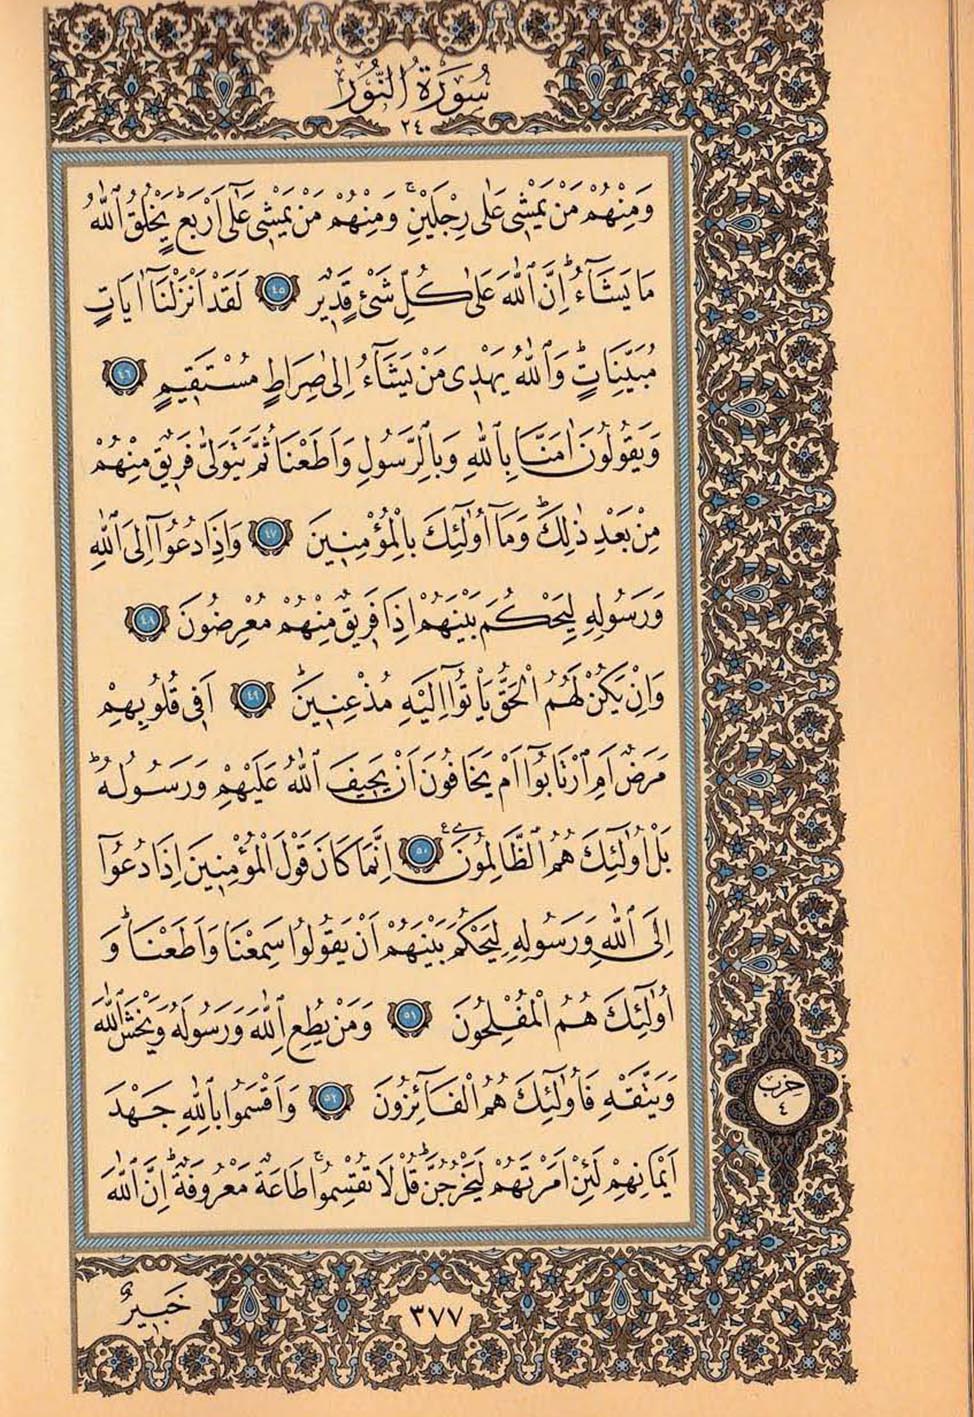 سُورَةُ النُّورِ
٢٤
وَمِنْهُمْ مَنْ يَمْشٖى عَلٰى رِجْلَيْنِۚ وَمِنْهُمْ مَنْ يَمْشٖى عَلٰٓى اَرْبَعٍؕ يَخْلُقُ اللّٰهُ
مَا يَشَٓاءُؕ اِنَّ اللّٰهَ عَلٰى كُلِّ شَیْءٍ قَدٖيرٌ ٤٥ لَقَدْ اَنْزَلْنَٓا اٰيَاتٍ
مُبَيِّنَاتٍؕ وَاللّٰهُ يَهْدٖى مَنْ يَشَٓاءُ اِلٰى صِرَاطٍ مُسْتَقٖيمٍ ٤٦
وَيَقُولُونَ اٰمَنَّا بِاللّٰهِ وَبِالرَّسُولِ وَاَطَعْنَا ثُمَّ يَتَوَلّٰى فَرٖيقٌ مِنْهُمْ
مِنْ بَعْدِ ذٰلِكَؕ وَمَٓا اُو۬لٰٓئِكَ بِالْمُؤْمِنٖينَ ٤٧ وَاِذَا دُعُٓوا اِلَى اللّٰهِ
وَرَسُولِهٖ لِيَحْكُمَ بَيْنَهُمْ اِذَا فَرٖيقٌ مِنْهُمْ مُعْرِضُونَ ٤٨
وَاِنْ يَكُنْ لَهُمُ الْحَقُّ يَاْتُٓوا اِلَيْهِ مُذْعِنٖينَؕ ٤٩ اَفٖى قُلُوبِهِمْ
مَرَضٌ اَمِ ارْتَابُٓوا اَمْ يَخَافُونَ اَنْ يَحٖيفَ اللّٰهُ عَلَيْهِمْ وَرَسُولُهُؕ
بَلْ اُو۬لٰٓئِكَ هُمُ الظَّالِمُونَ ع ٥٠ اِنَّمَا كَانَ قَوْلَ الْمُؤْمِنٖينَ اِذَا دُعُٓوا
اِلَى اللّٰهِ وَرَسُولِهٖ لِيَحْكُمَ بَيْنَهُمْ اَنْ يَقُولُوا سَمِعْنَا وَاَطَعْنَاؕ وَ
اُو۬لٰٓئِكَ هُمُ الْمُفْلِحُونَ ٥١ وَمَنْ يُطِعِ اللّٰهَ وَرَسُولَهُ وَيَخْشَ اللّٰهَ
وَيَتَّقْهِ فَاُو۬لٰٓئِكَ هُمُ الْفَٓائِزُونَ ٥٢ وَاَقْسَمُوا بِاللّٰهِ جَهْدَ
اَيْمَانِهِمْ لَئِنْ اَمَرْتَهُمْ لَيَخْرُجُنَّؕ قُلْ لَا تُقْسِمُواۚ طَاعَةٌ مَعْرُوفَةٌؕ اِنَّ اللّٰهَ
حزب
٤
خَبٖيرٌ
٣٧٧